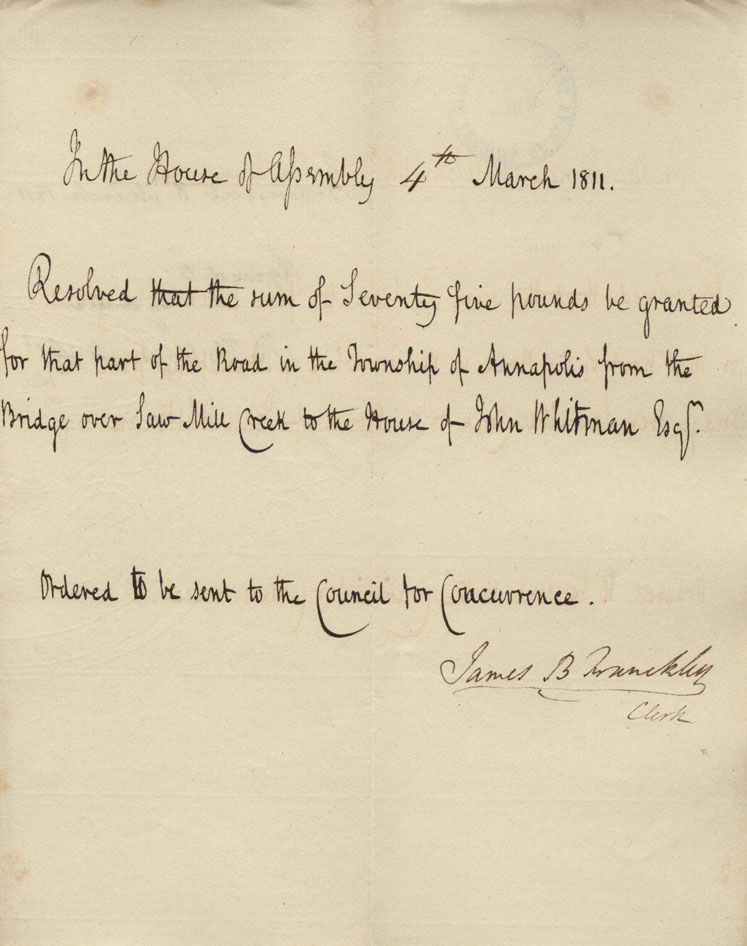 In the House of Assembly 4th March 1811.
Resolved that the sum of Seventy five pounds be granted
for that part of the Road in the Township of Annapolis from the
Bridge over Saw Mill Creek to the House of John Whitman Esqr.
Ordered to be sent to the Council for Concurrence.
James B Franckley
Clerk